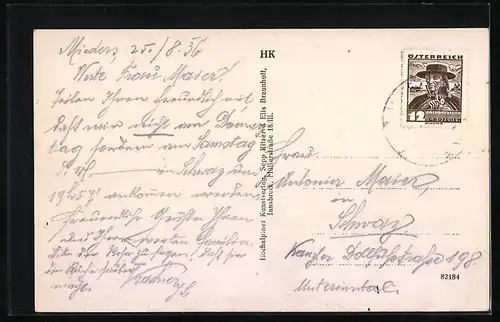 Mieders, 25./8.36
Werte Frau Maier!
Teilen Ihnen freundlich mit
daß wir nicht am Donners
tag sondern am Samstag
in Schwaz um
19h57 ankommen werden.
Freundliche Grüße Ihnen
und Ihrer werten Familie.
HK
Hochalpiner Kunstverlag, Sepp Ritzer & Elis Braunhoff,
Innsbruck, Müllerstraße 18/III.
ÖSTERREICH
12
GROSCHEN
Frau
Antonia Maier
in
Schwaz
Kanzler Dollfußstraße 198
Unterinntal.
82184